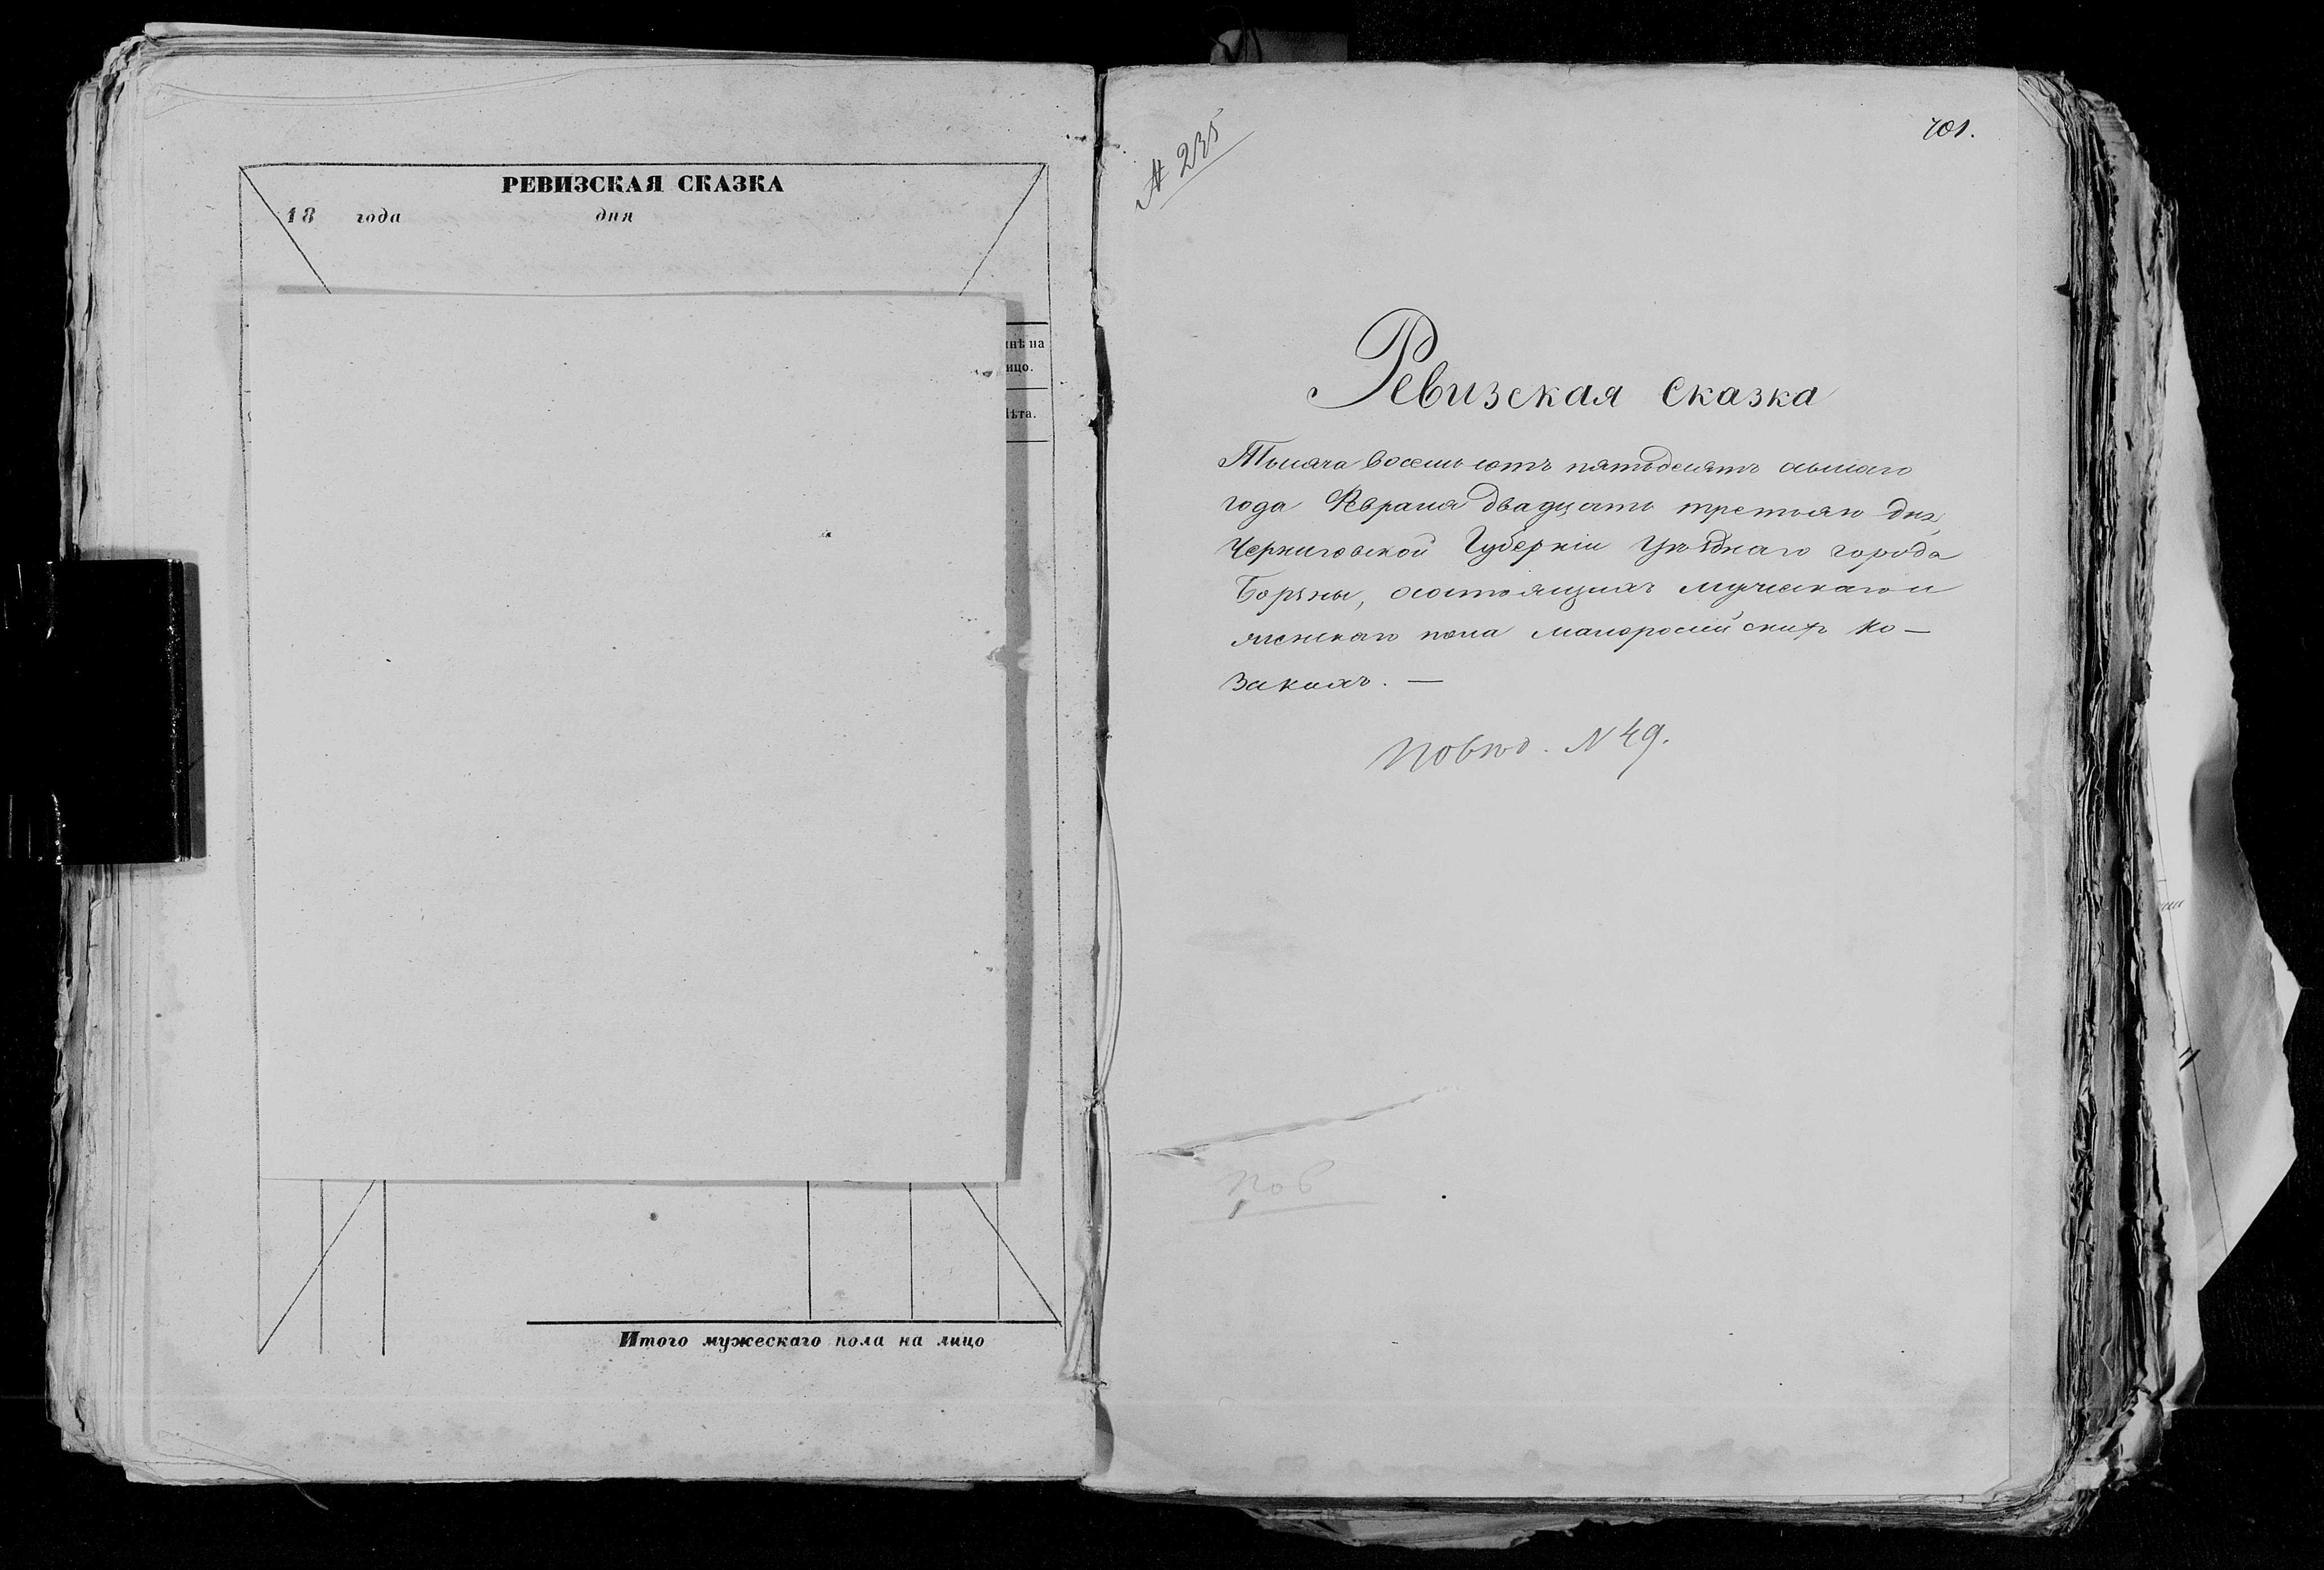 РЕВИЗСКАЯ СКАЗКА
18 года дня
нѣ на
ицо.
лѣта.
Итого мужескаго пола на лицо
№ 235
701.
Ревизская сказка
Тысяча восемьсотъ пятьдесятъ осьмаго
года Февраля двадцать третьяго дня,
Черниговской Губерніи Уѣзднаго города
Борзны, состоящихъ мужескаго и
женскаго пола малороссійскихъ Ко-
закахъ. —
Повѣд. N 49.
Пов